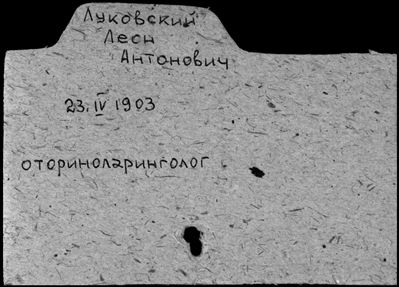 Луковский
Леон
Антонович
23.IV 1903
оториноларинголог